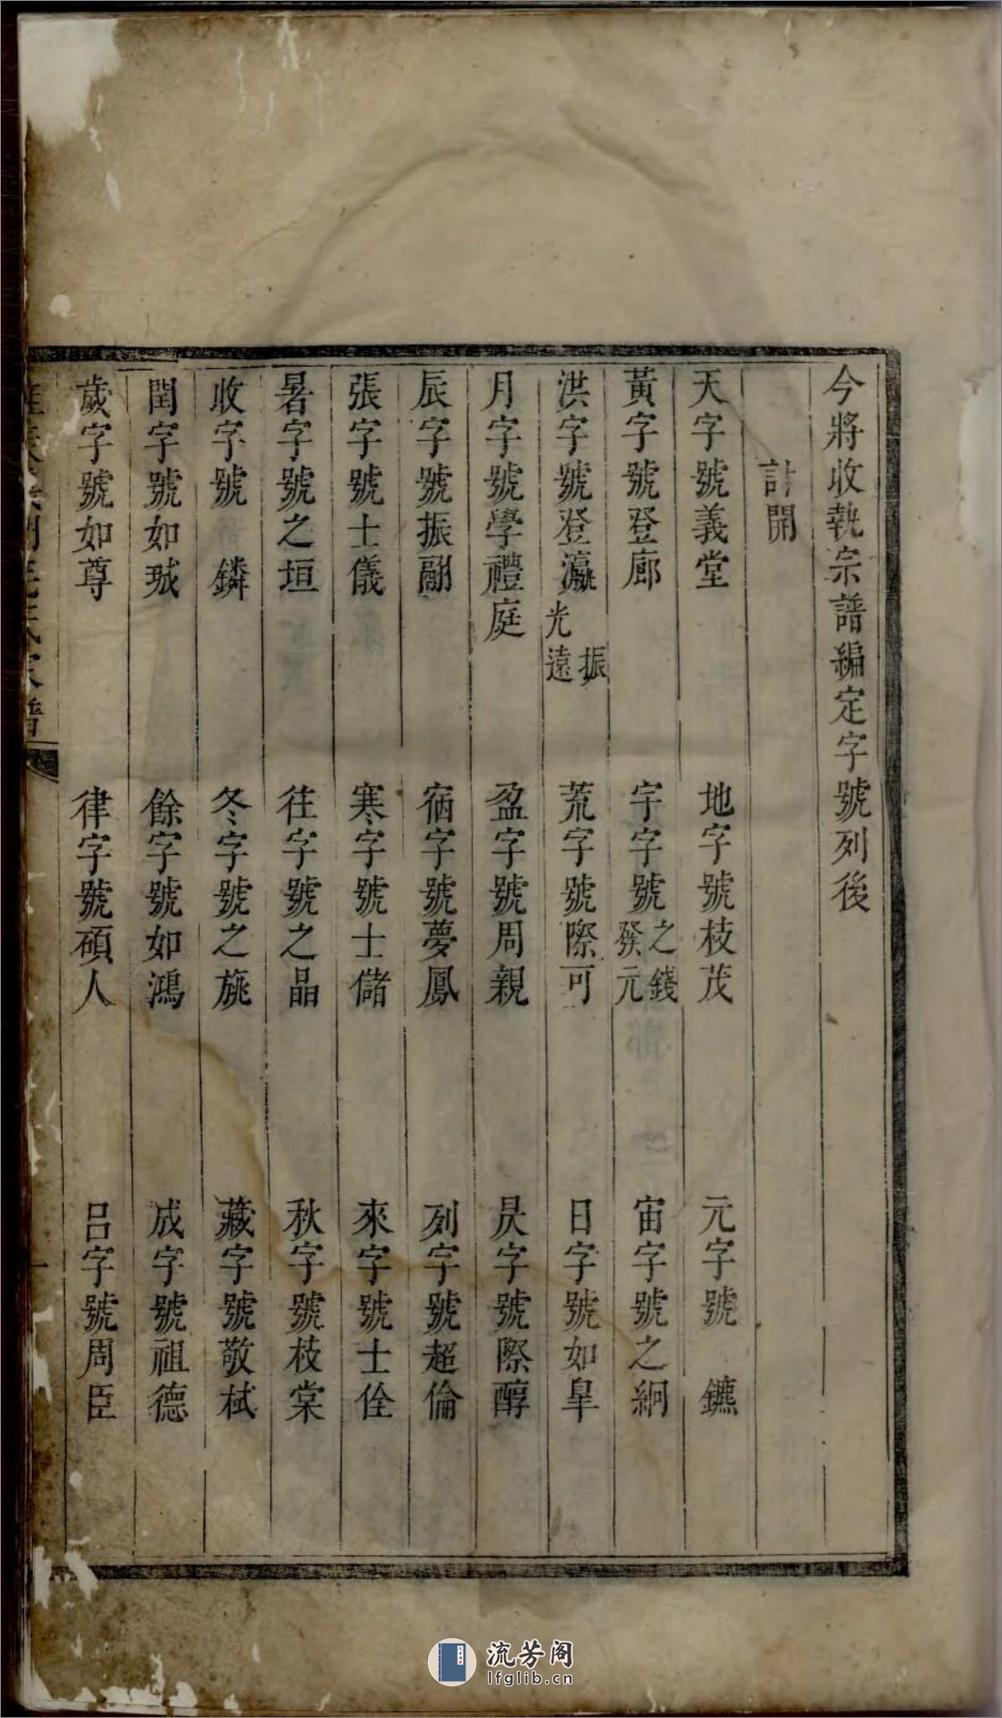 今將收執宗譜編定字號列後
計開
天字號義堂　地字號枝茂　元字號　鑣
黃字號登廊　宇字號之錢發元　宙字號之綱
洪字號登瀛振光遠　荒字號際可　日字號如皐
月字號學禮庭　盈字號周親　昃字號際醇
辰字號振翮　宿字號夢鳳　列字號超倫
張字號士儀　寒字號士儲　來字號士佺
暑字號之垣　往字號之晶　秋字號枝棠
收字號　鏻　冬字號之旐　藏字號敬栻
閏字號如珹　餘字號如鴻　成字號祖德
歲字號如尊　律字號碩人　呂字號周臣
流芳阁
lfglib.cn